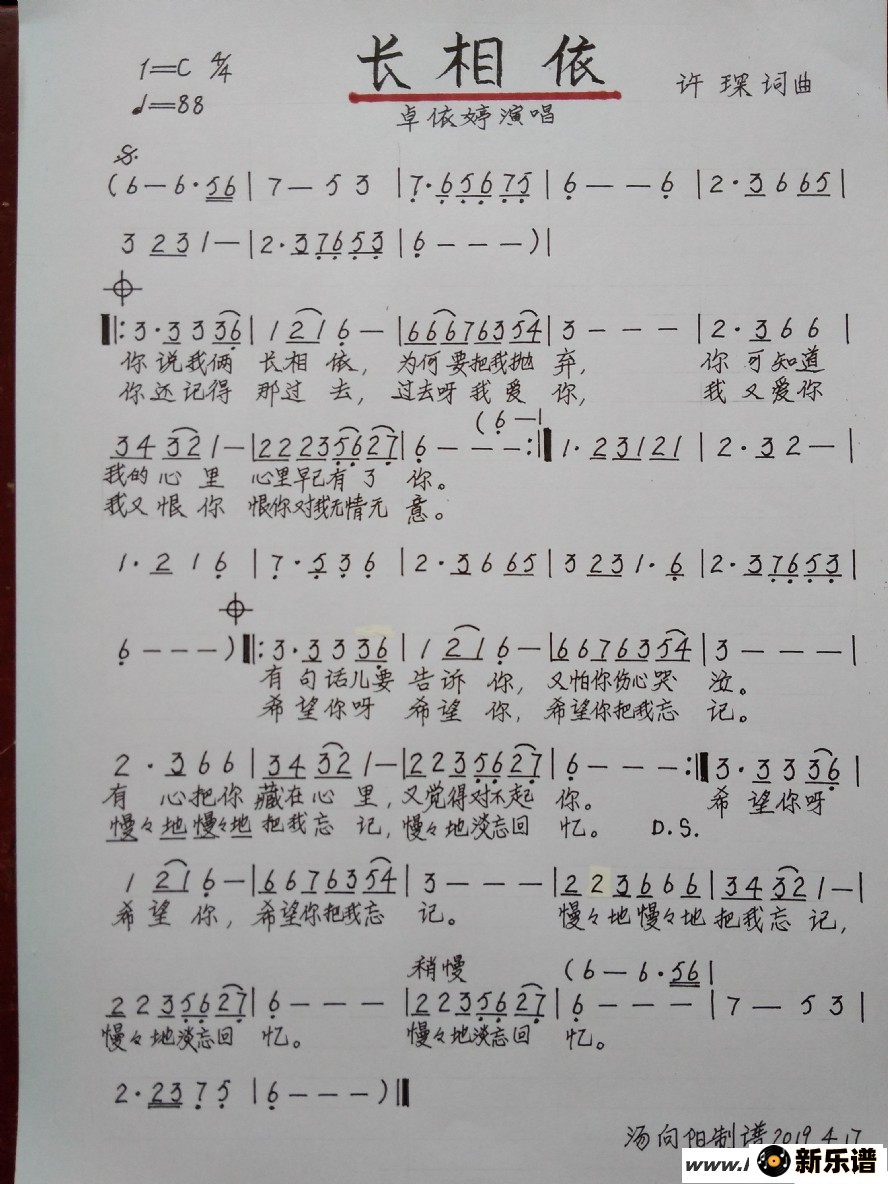 1=C 4/4
长相依
许琛词曲
♩=88
卓依婷演唱
(6－6·56|7－53|7·65675|6－－6|2·3665|
3231－|2·37653|6－－－)|
‖:3·3336|1216－|66676354|3－－－|2·366|
你说我俩 长相依，为何要把我抛弃，你可知道
你还记得 那过去，过去呀我爱你，我又爱你
(6－|
34321－|22235627|6－－－:‖1·23121|2·32－|
我的心里 心里早已有了你。
我又恨你 恨你对我无情无意。
1·216|7·536|2·3665|3231·6|2·37653|
6－－－)‖:3·3336|1216－|6676354|3－－－|
有句话儿要告诉你，又怕你伤心哭泣。
希望你呀 希望你，希望你把我忘记。
2·366|34321－|2235627|6－－－:‖3·3336|
有心把你藏在心里，又觉得对不起你。 希望你呀
慢々地慢々地把我忘记，慢々地淡忘回忆。 D.S.
1216－|6676354|3－－－|223666|34321－|
希望你，希望你把我忘记。 慢々地慢々地把我忘记，
稍慢 (6－6·56|
2235627|6－－－|2235627|6－－－|7－53|
慢々地淡忘回忆。 慢々地淡忘回忆。
2·2375|6－－－)‖
汤向阳制谱2019.4.17
www. 新乐谱